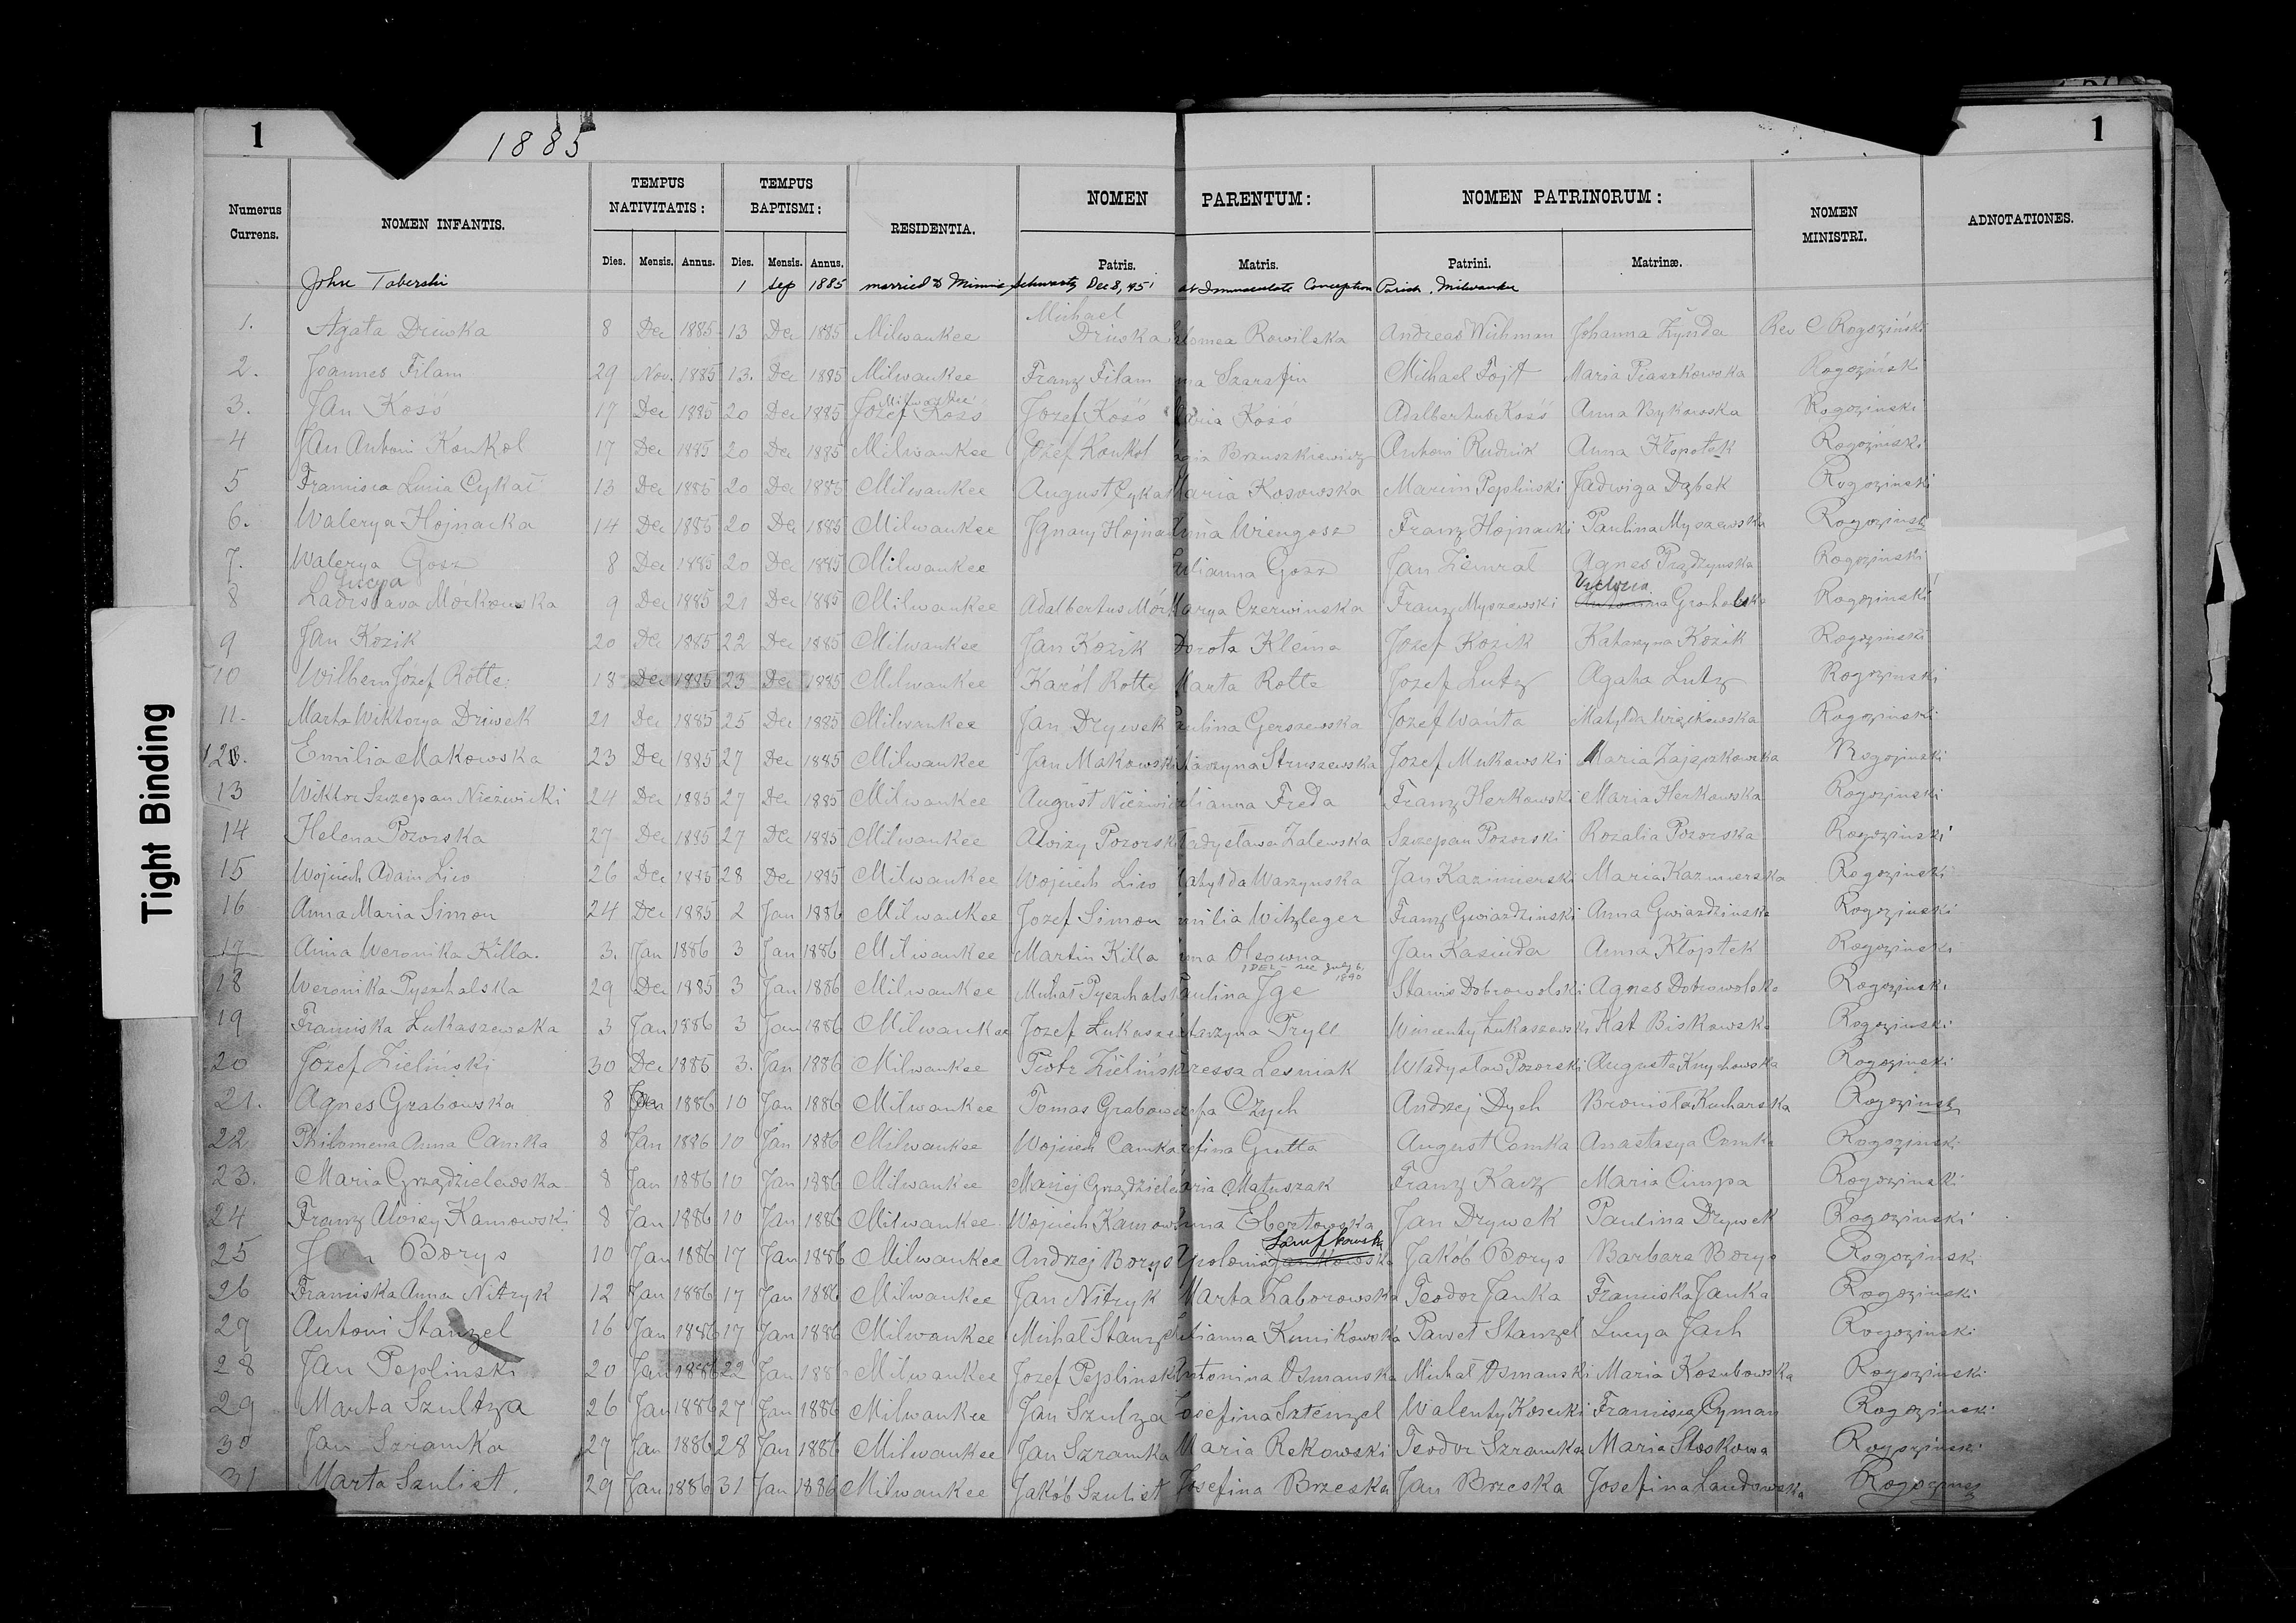 1 1885 1
Numerus Currens. NOMEN INFANTIS. TEMPUS NATIVITATIS: TEMPUS BAPTISMI: RESIDENTIA. NOMEN PARENTUM: NOMEN PATRINORUM: NOMEN MINISTRI. ADNOTATIONES.
Dies. Mensis. Annus. Dies. Mensis. Annus. Patris. Matris. Patrini. Matrinæ.
John Taberski 1 Sep 1885 married to Minnie Schwartz Dec 8, 45 at Immaculate Conception Parish, Milwaukee
1. Agata Druska 8 Dec 1885 13 Dec 1885 Milwaukee Michael Druska lomea Rowilska Andreas Wichman Johanna Zynda Rev C Rogoziński
2. Joannes Filam 29 Nov. 1885 13. Dec 1885 Milwaukee Franz Filam na Szarafin Michael Fojt Maria Piaszkowska Rogoziński
3. Jan Kośś 17 Dec 1885 20 Dec 1885 Milwaukee Józef Kośś Jozef Kośś Maria Kośś Adalbertus Kośś Anna Bykowska Rogozinski
4 Jan Antoni Konkol 17 Dec 1885 20 Dec 1885 Milwaukee Józef Konkol Brzuszkiewicz Antoni Rudnik Anna Kłopotek Rogoziński
5 Francisca Lucia Cykał 13 Dec 1885 20 Dec 1885 Milwaukee August Cyka Maria Kosowska Marcin Pepliński Jadwiga Dąbek Rogozinski
6. Walerya Hojnacka 14 Dec 1885 20 Dec 1885 Milwaukee Ignacy Hojna Anna Wiengosz Franz Hojnacki Paulina Myszewska Rogozinsk
7. Walerya Gosz 8 Dec 1885 20 Dec 1885 Milwaukee Julianna Gosz Jan Agnes Prądzynska Rogozinski
8 Ladislava Lucya Mörkowska 9 Dec 1885 21 Dec 1885 Milwaukee Adalbertus Mör Marya Czerwinska Franz Myszewski Victoria Groholska Rogozinski
9 Jan Kozik 20 Dec 1885 22 Dec 1885 Milwaukee Jan Kozik Dorota Kleina Jozef Kozik Katarzyna Kozik Rogozinski
10 Wilhem Józef Rotte 18 Dec 1885 23 Dec 1885 Milwaukee Karól Rotte Marta Rotte Jozef Lutz Agata Lutz Rogozinski
11. Marta Wiktorya Driwek 21 Dec 1885 25 Dec 1885 Milwaukee Jan Drywek Paulina Gerszewska Jozef Wanta Matylda Więckowska Rogozinski
12. Emilia Makowska 23 Dec 1885 27 Dec 1885 Milwaukee Jan Makowski tarzyna Struszewska Jozef Mukowski Maria Zającskowska Rogozinski
13 Wiktor Szczepan Nieżwicki 24 Dec 1885 27 Dec 1885 Milwaukee August Nieżwic ulianna Freda Franz Herkowski Maria Herkowska Rogozinski
14 Helena Pozorska 27 Dec 1885 27 Dec 1885 Milwaukee Alvizy Pozorsk ladysława Zalewska Szczepan Pozorski Rozalia Pozorska Rogozinski
15 Wojciech Adam Liso 26 Dec 1885 28 Dec 1885 Milwaukee Wojciech Liso atylda Warzynska Jan Kazimierski Maria Kazmierska Rogozinski
16 Anna Maria Simon 24 Dec 1885 2 Jan 1886 Milwaukee Jozef Simon milia Witzleger Franz Gwiazdzinski Anna Gwiazdzinska Rogozinski
17 Anna Weronika Killa 3. Jan 1886 3 Jan 1886 Milwaukee Martin Killa nna Olsowna Jan Kasiuda Anna Kłoptek Rogozinski
18 Weronika Pyszhalska 29 Dec 1885 3 Jan 1886 Milwaukee Michał Pyszhalsk Paulina Jge Stanis Dobrowolski Agnes Dobrowolska Rogozinski
19 Franciska Lukaszewska 3 Jan 1886 3 Jan 1886 Milwaukee Jozef Łukasze tarzyna Pryll Wincenty Łukaszewski Kat Biskowska Rogozinski
20 Jozef Zieliński 30 Dec 1885 3. Jan 1886 Milwaukee Piotr Zielińsk ressa Lesniak Władysław Pozorski Augusta Knychowska Rogozinski
21. Agnes Grabowska 8 Jan 1886 10 Jan 1886 Milwaukee Tomas Grabows efa Czych Andrzej Dych Bronisła Kucharska Rogozinsk
22 Philomena Anna Camka 8 Jan 1886 10 Jan 1886 Milwaukee Wojciech Camka efina Grutta August Comka Anastasya Comka Rogozinski
23. Maria Grządzielewska 8 Jan 1886 10 Jan 1886 Milwaukee Maciej Grządziele aria Matuszak Franz Kacz Maria Cimpa Rogozinski
24 Franz Alvizy Kamowski 8 Jan 1886 10 Jan 1886 Milwaukee Wojciech Kamow nna Ebertowska Jan Drywek Paulina Drywek Rogozinski
25 Jan Borys 10 Jan 1886 17 Jan 1886 Milwaukee Andrzej Borys Apolonia Jankowska Jakób Borys Barbara Borys Rogozinski
26 Franciska Anna Nitzyk 12 Jan 1886 17 Jan 1886 Milwaukee Jan Nitzyk Marta Zaborowska Teodor Janka Franciska Janka Rogozinski
27 Antoni Stanzel 16 Jan 1886 17 Jan 1886 Milwaukee Michał Stanze lianna Kunikowska Paweł Stanzel Lucya Jach Rogozinski
28 Jan Peplinski 20 Jan 1886 22 Jan 188 Milwaukee Jozef Peplinski Antonina Osmanska Michał Osmanski Maria Kosubowska Rogozinski
29 Marta Szultza 26 Jan 1886 27 Jan 1886 Milwaukee Jan Szulza Josefina Sztenzel Walenty Kosecki Francisca Cyman Rogozinski
30 Jan Szramka 27 Jan 1886 28 Jan 1886 Milwaukee Jan Szramka Maria Rekowski Teodor Szramka Maria Stoskowa Rogozinski
31 Marta Szulist. 29 Jan 1886 31 Jan 1886 Milwaukee Jakób Szulist Josefina Brzeska Jan Brzeska Josefina Landowska
Tight Binding